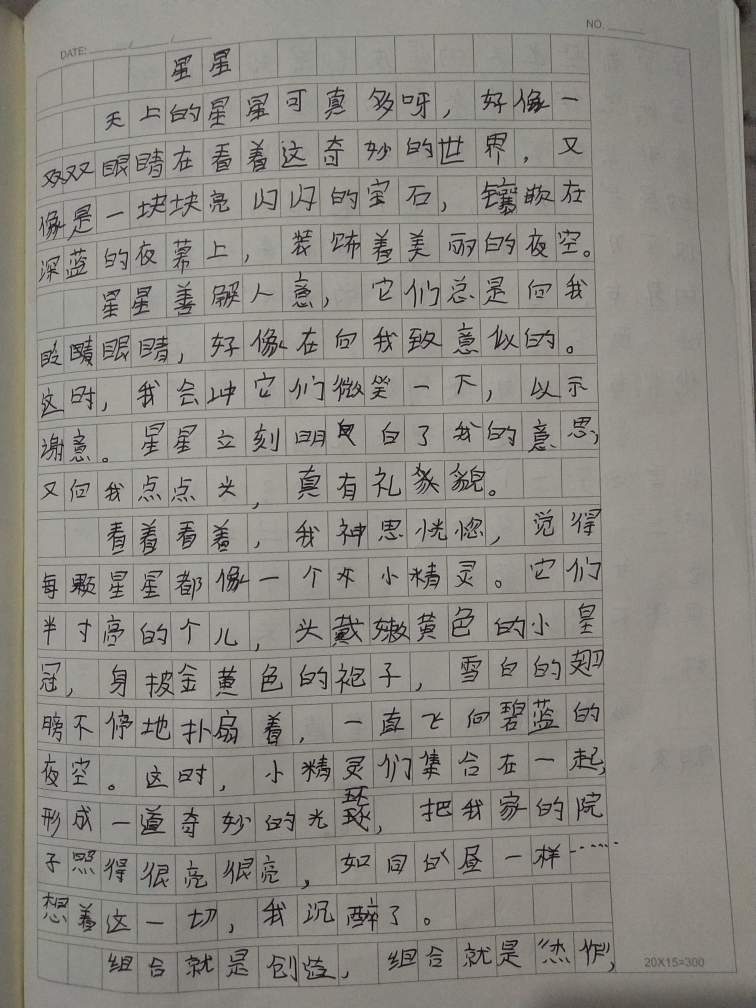 DATE: / /
NO.
星星
天上的星星可真多呀，好像一
双双眼睛在看着这奇妙的世界，又
像是一块块亮闪闪的宝石，镶嵌在
深蓝的夜幕上，装饰着美丽的夜空。
星星善解人意，它们总是向我
眨眼睛，好像在向我致意似的。
这时，我会冲它们微笑一下，以示
谢意。星星立刻明白了我的意思，
又向我点点头，真有礼貌。
看着看着，我神思恍惚，觉得
每颗星星都像一个个小精灵。它们
半寸高的个儿，头戴嫩黄色的小皇
冠，身披金黄色的袍子，雪白的翅
膀不停地扑扇着，一直飞向碧蓝的
夜空。这时，小精灵们集合在一起，
形成一道奇妙的光环，把我家的院
子照得很亮很亮，如同白昼一样……
想着这一切，我沉醉了。
组合就是创造，组合就是“杰作”，
20X15=300